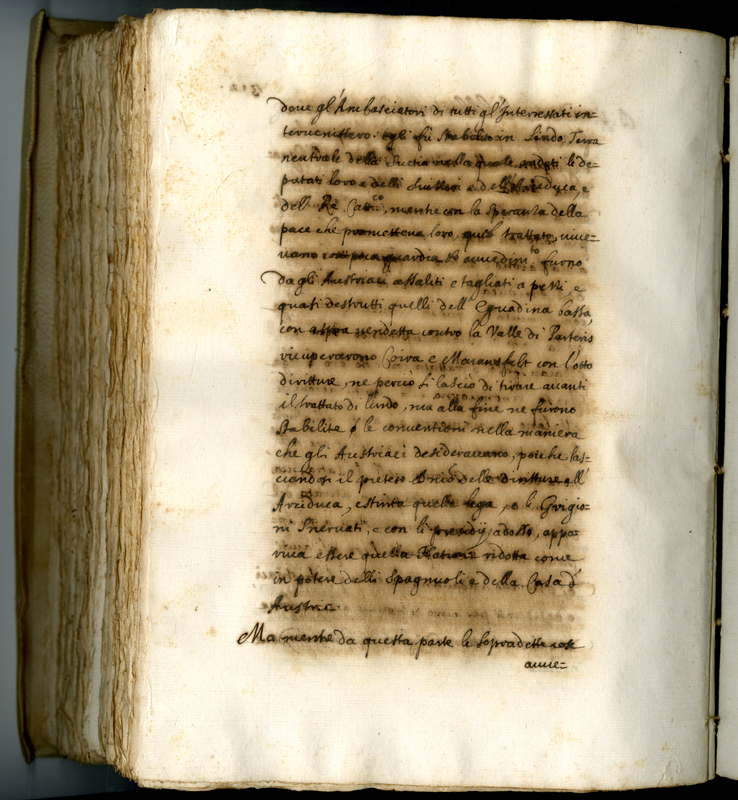 doue gl'Ambasciatori di tutti gl'Interessati in=
teruenissero: egli fù stabilito in Lindo, Terra
neutrale della Suetia nella quale andati li de=
putati loro e delli Suizzeri e dell'Arciduca, e
dell Re Cattco, mentre con la Speranza della
pace che prometteua loro, quel trattato, uiue=
uano con poca guardia furno
dagli Austriaci assaliti e tagliati a pezzi, e
quasi destrutti quelli dell'Eguadina bassa,
con aspra uendetta contro la Valle di Parteris
ricuperarono Coira e Maiansfelt con l'otto
diritture, ne perciò si lasciò di tirare auanti
il trattato di lindo, ma alla fine ne furono
stabilite le conuentioni nella maniera
che gli Austriaci desiderauano, poiche las=
ciandosi il preteso delle diritture all'
Arciduca, estinta quella lega, e li Grigio=
ni Sneruati, e con li presidij adosso, appa=
riua essere quella ridotta come
in potere delli Spagnuoli e della Casa d'
Austria.
Ma mentre da questa parte le sopradette cose
auue=